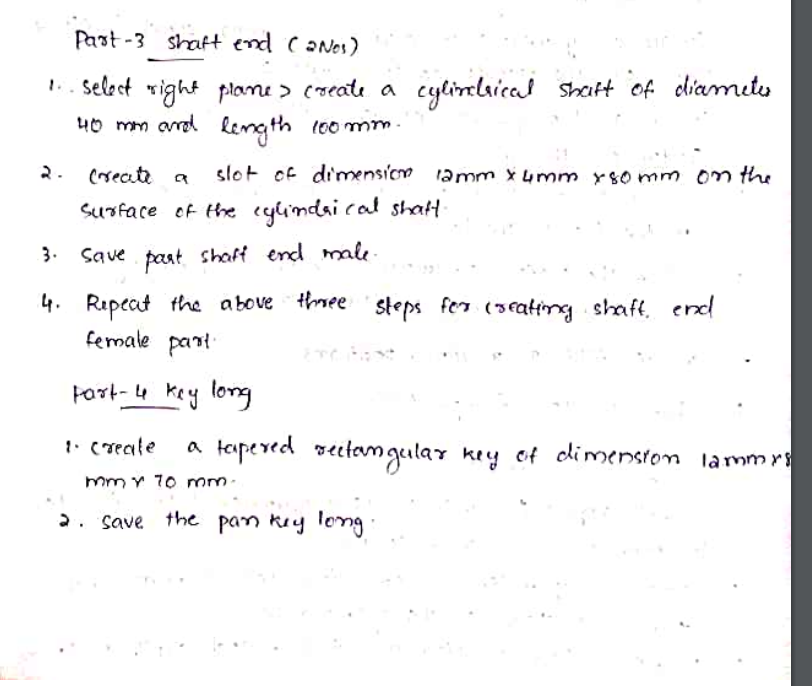 Part-3 shaft end (2Nos)
1. Select right plane > Create a cylindrical shaft of diameter
40 mm and length 100 mm.
2. Create a slot of dimension 12mm x 4mm x 80 mm on the
surface of the cylindrical shaft.
3. Save part shaft end male.
4. Repeat the above three steps for creating shaft, end
female part.
Part-4 key long
1. Create a tapered rectangular key of dimension 12mm x 8
mm x 70 mm.
2. Save the pan key long.